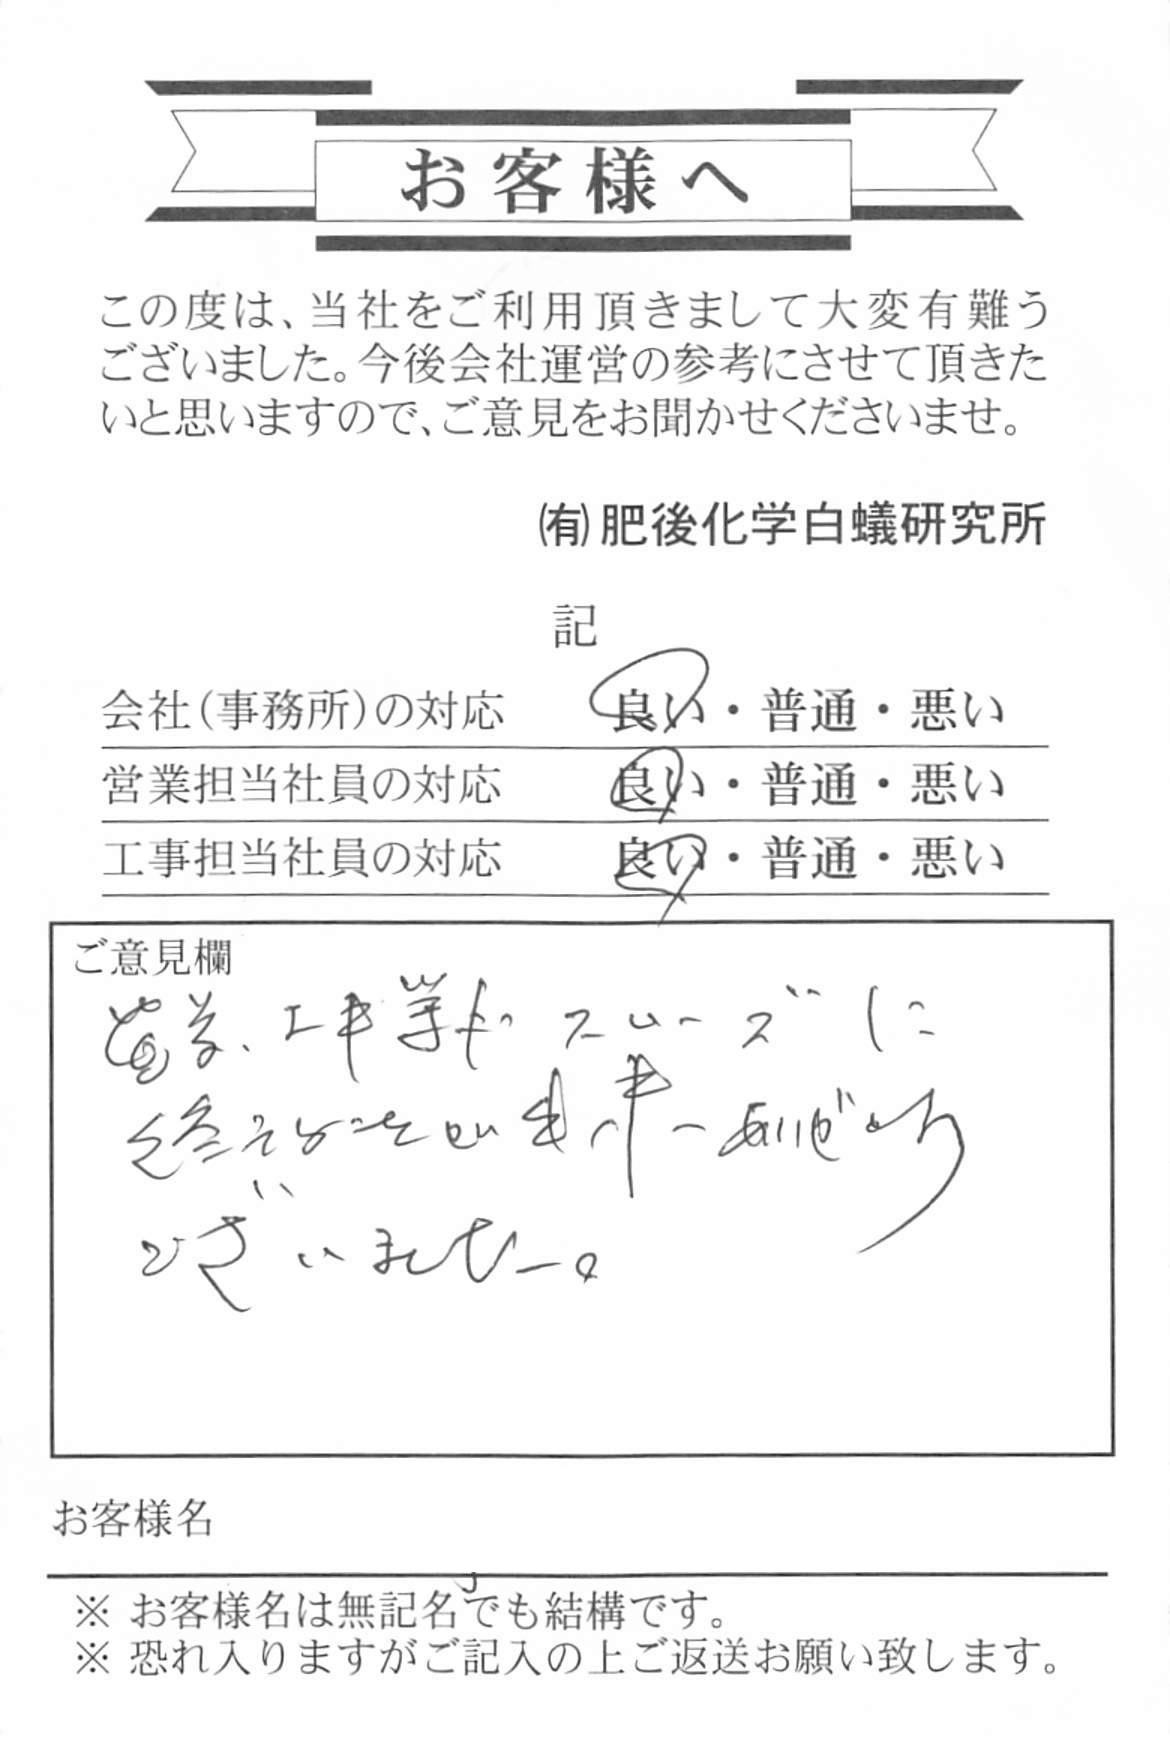 お客様へ
この度は、当社をご利用頂きまして大変有難う
ございました。今後会社運営の参考にさせて頂きた
いと思いますので、ご意見をお聞かせくださいませ。
㈲肥後化学白蟻研究所
記
会社(事務所)の対応 良い・普通・悪い
営業担当社員の対応 良い・普通・悪い
工事担当社員の対応 良い・普通・悪い
ご意見欄
工事等 スムーズに
終えることが出来 ありがとう
ございました。
お客様名
※ お客様名は無記名でも結構です。
※ 恐れ入りますがご記入の上ご返送お願い致します。